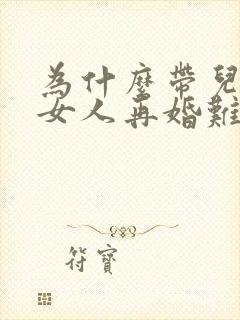 為什麼帶兒
女人再婚難
符寶